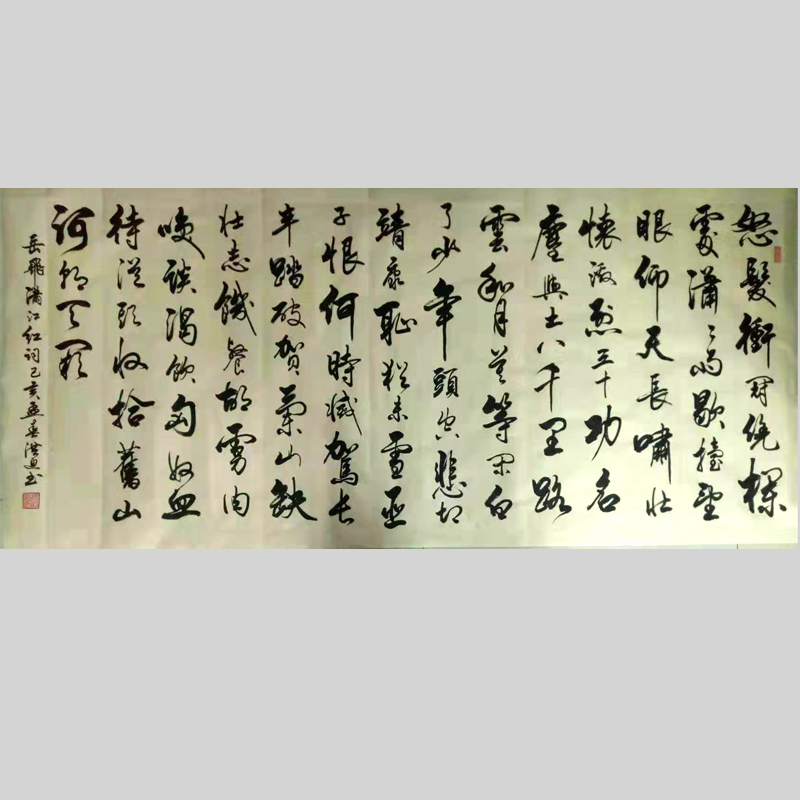 怒髮衝冠凭欄
處瀟〻雨歇擡望
眼仰天長嘯壯
懷激烈三十功名
塵與土八千里路
雲和月莫等閑白
了少年頭空悲切
靖康恥猶未雪臣
子恨何時滅駕長
車踏破賀蘭山缺
壯志饑餐胡虜肉
咲談渴飲匈奴血
待從頭收拾舊山
河朝天闕
岳飛滿江红詞己亥孟春洪书